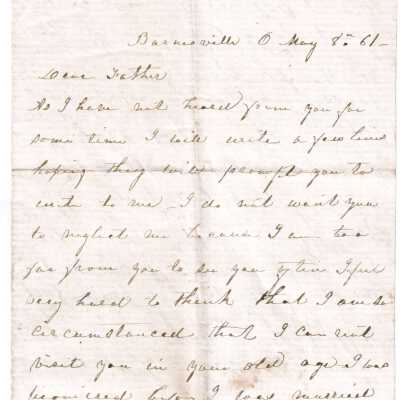 Barnesville O May 8th 61-
Dear Father
As I have not heard from you for
some time I will write a few lines
hoping they will prompt you to
write to me I do not want you
to neglect me because I am too
far from you to see you often I feel
very hard to think that I am so
circumstanced that I can not
visit you in your old age I was
promised before I was married